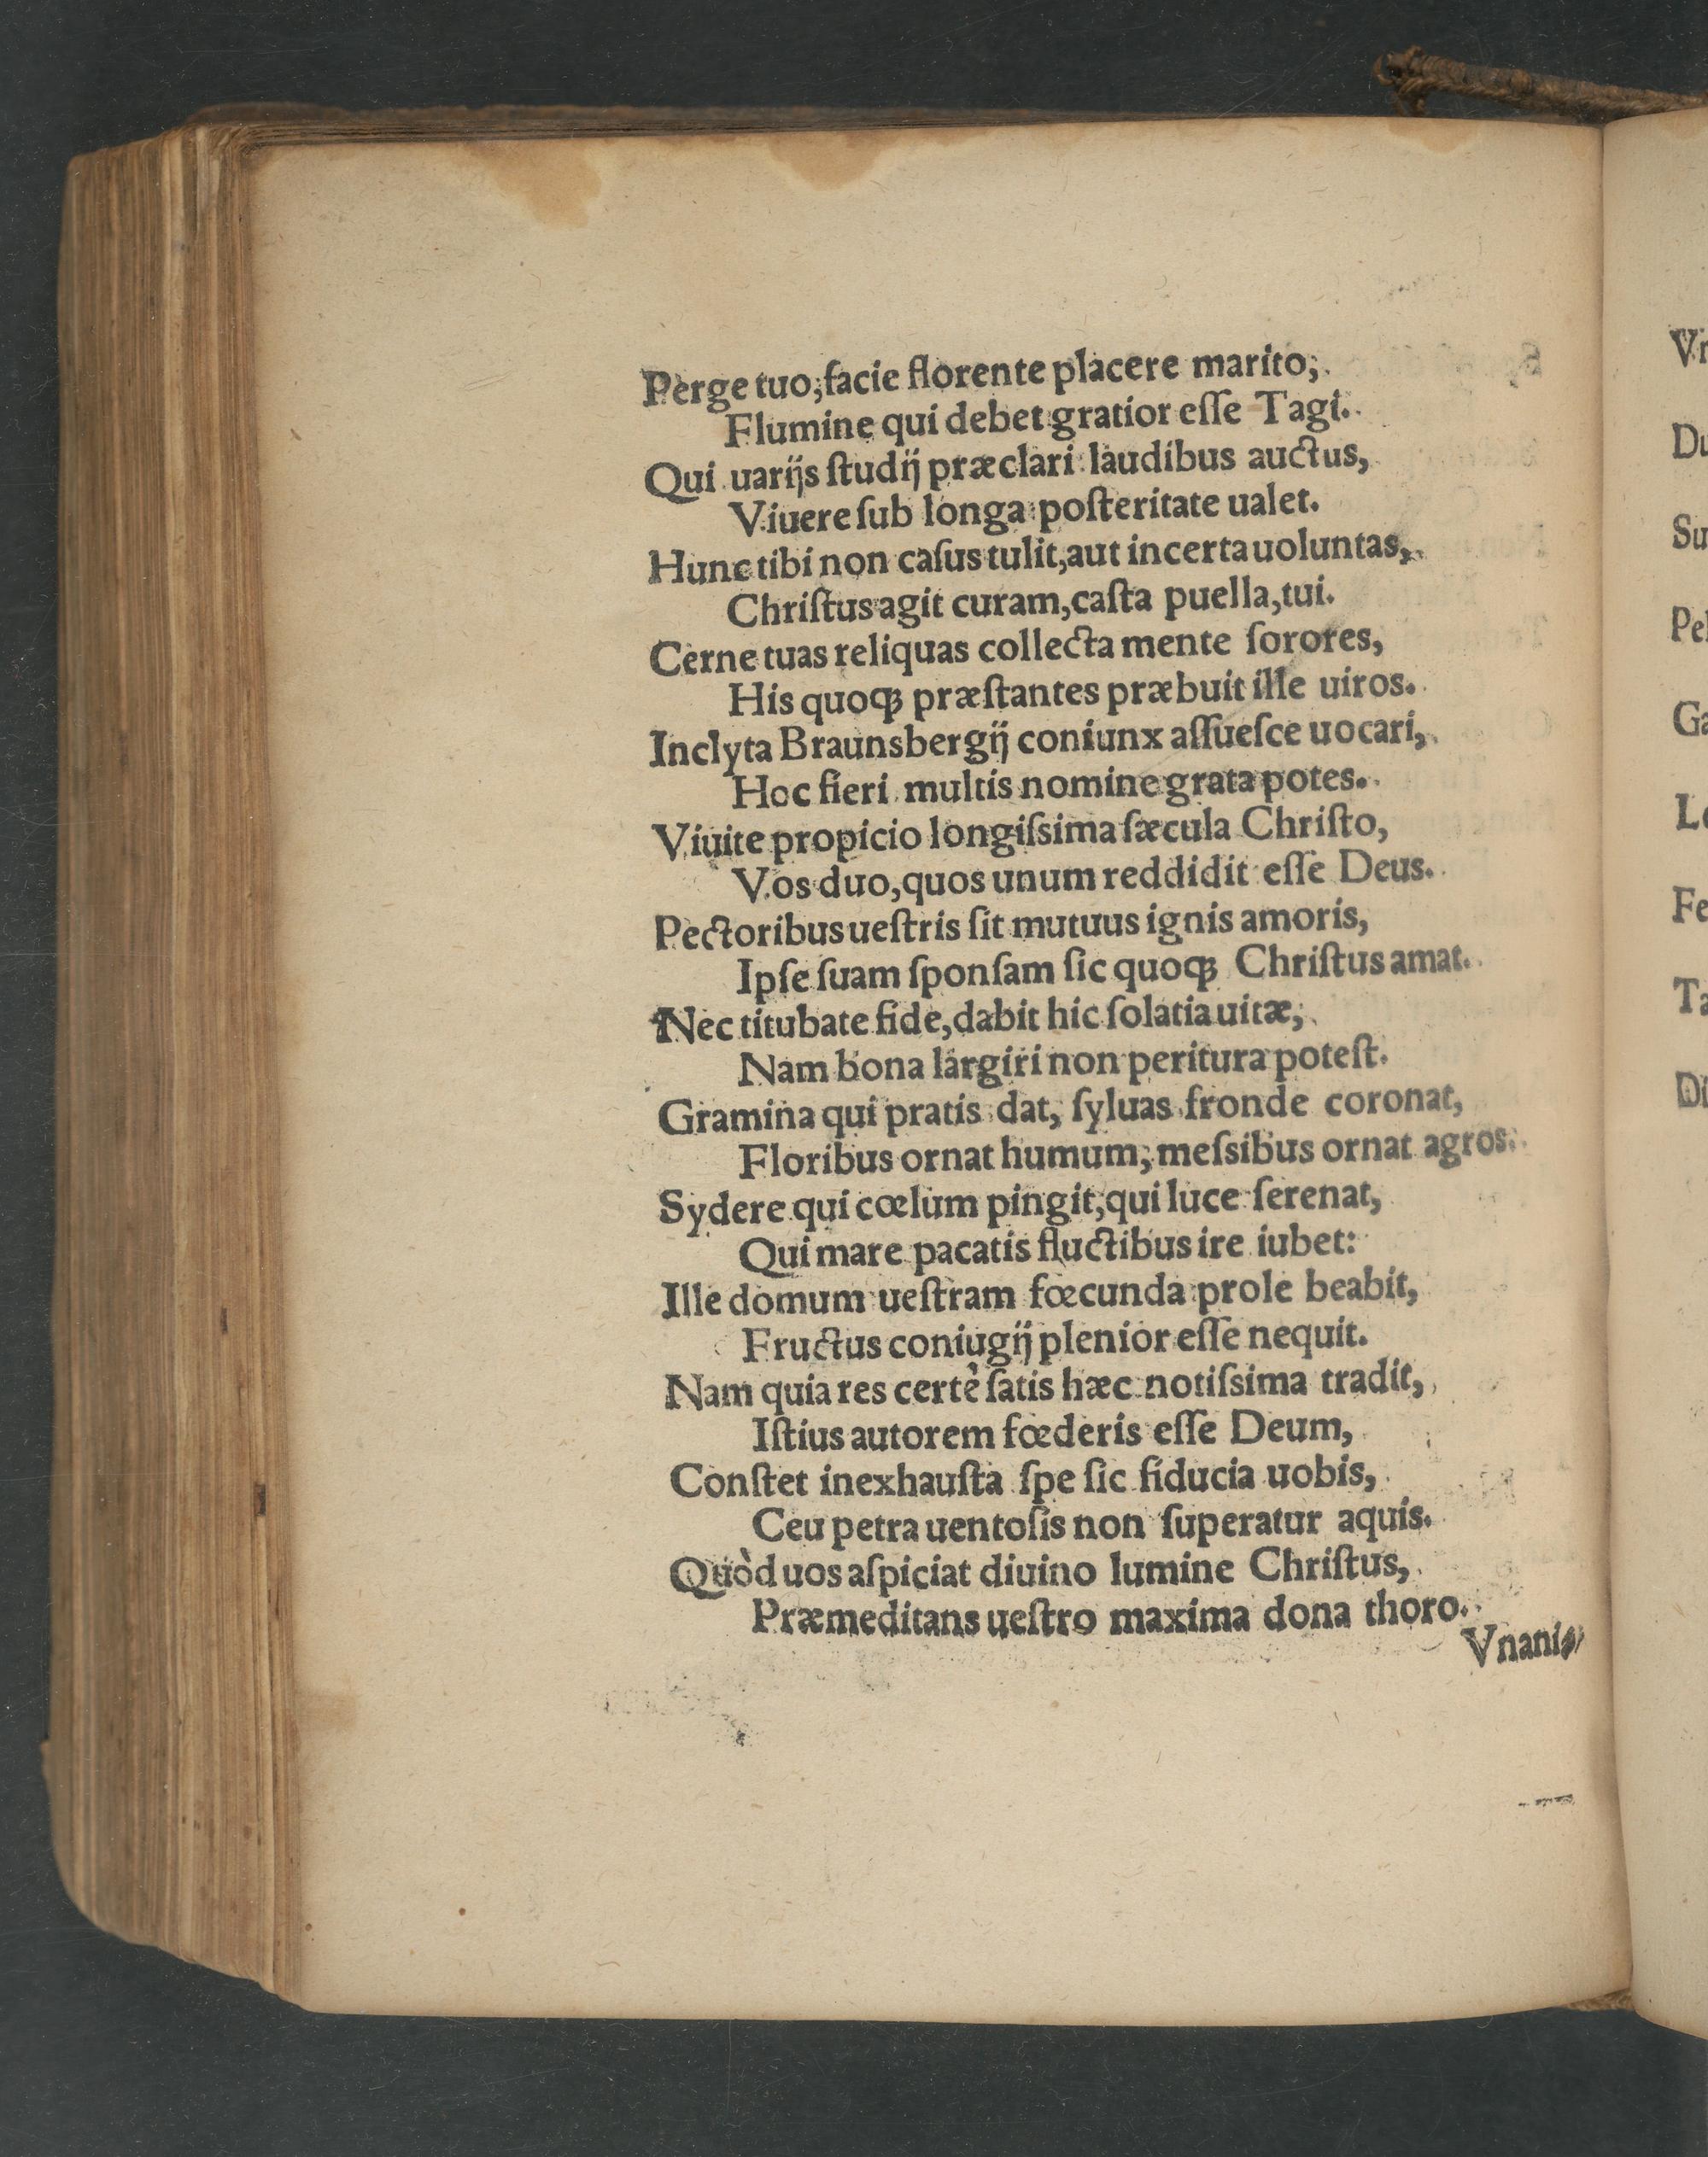 Perge tuo, facie florente placere marito,
Flumine qui debet gratior eſſe Tagi.
Qui uarijs ſtudij præclari laudibus auctus,
Viuere ſub longa poſteritate ualet.
Hunc tibi non caſus tulit, aut incerta uoluntas,
Chriſtus agit curam, caſta puella, tui.
Cerne tuas reliquas collecta mente ſorores,
His quoq; præſtantes præbuit ille uiros.
Inclyta Braunsbergij coniunx aſſueſce uocari,
Hoc fieri multis nomine grata potes.
Viuite propicio longiſsima ſæcula Chriſto,
Vos duo, quos unum reddidit eſſe Deus.
Pectoribus ueſtris ſit mutuus ignis amoris,
Ipſe ſuam ſponſam ſic quoq; Chriſtus amat.
Nec titubate fide, dabit hic ſolatia uitæ,
Nam bona largiri non peritura poteſt.
Gramina qui pratis dat, ſyluas fronde coronat,
Floribus ornat humum, meſsibus ornat agros.
Sydere qui cœlum pingit, qui luce ſerenat,
Qui mare pacatis fluctibus ire iubet:
Ille domum ueſtram fœcunda prole beabit,
Fructus coniugij plenior eſſe nequit.
Nam quia res certè ſatis hæc notiſsima tradit,
Iſtius autorem fœderis eſſe Deum,
Conſtet inexhauſta ſpe ſic fiducia uobis,
Ceu petra uentoſis non ſuperatur aquis.
Quòd uos aſpiciat diuino lumine Chriſtus,
Præmeditans ueſtro maxima dona thoro.
Vnani⸗